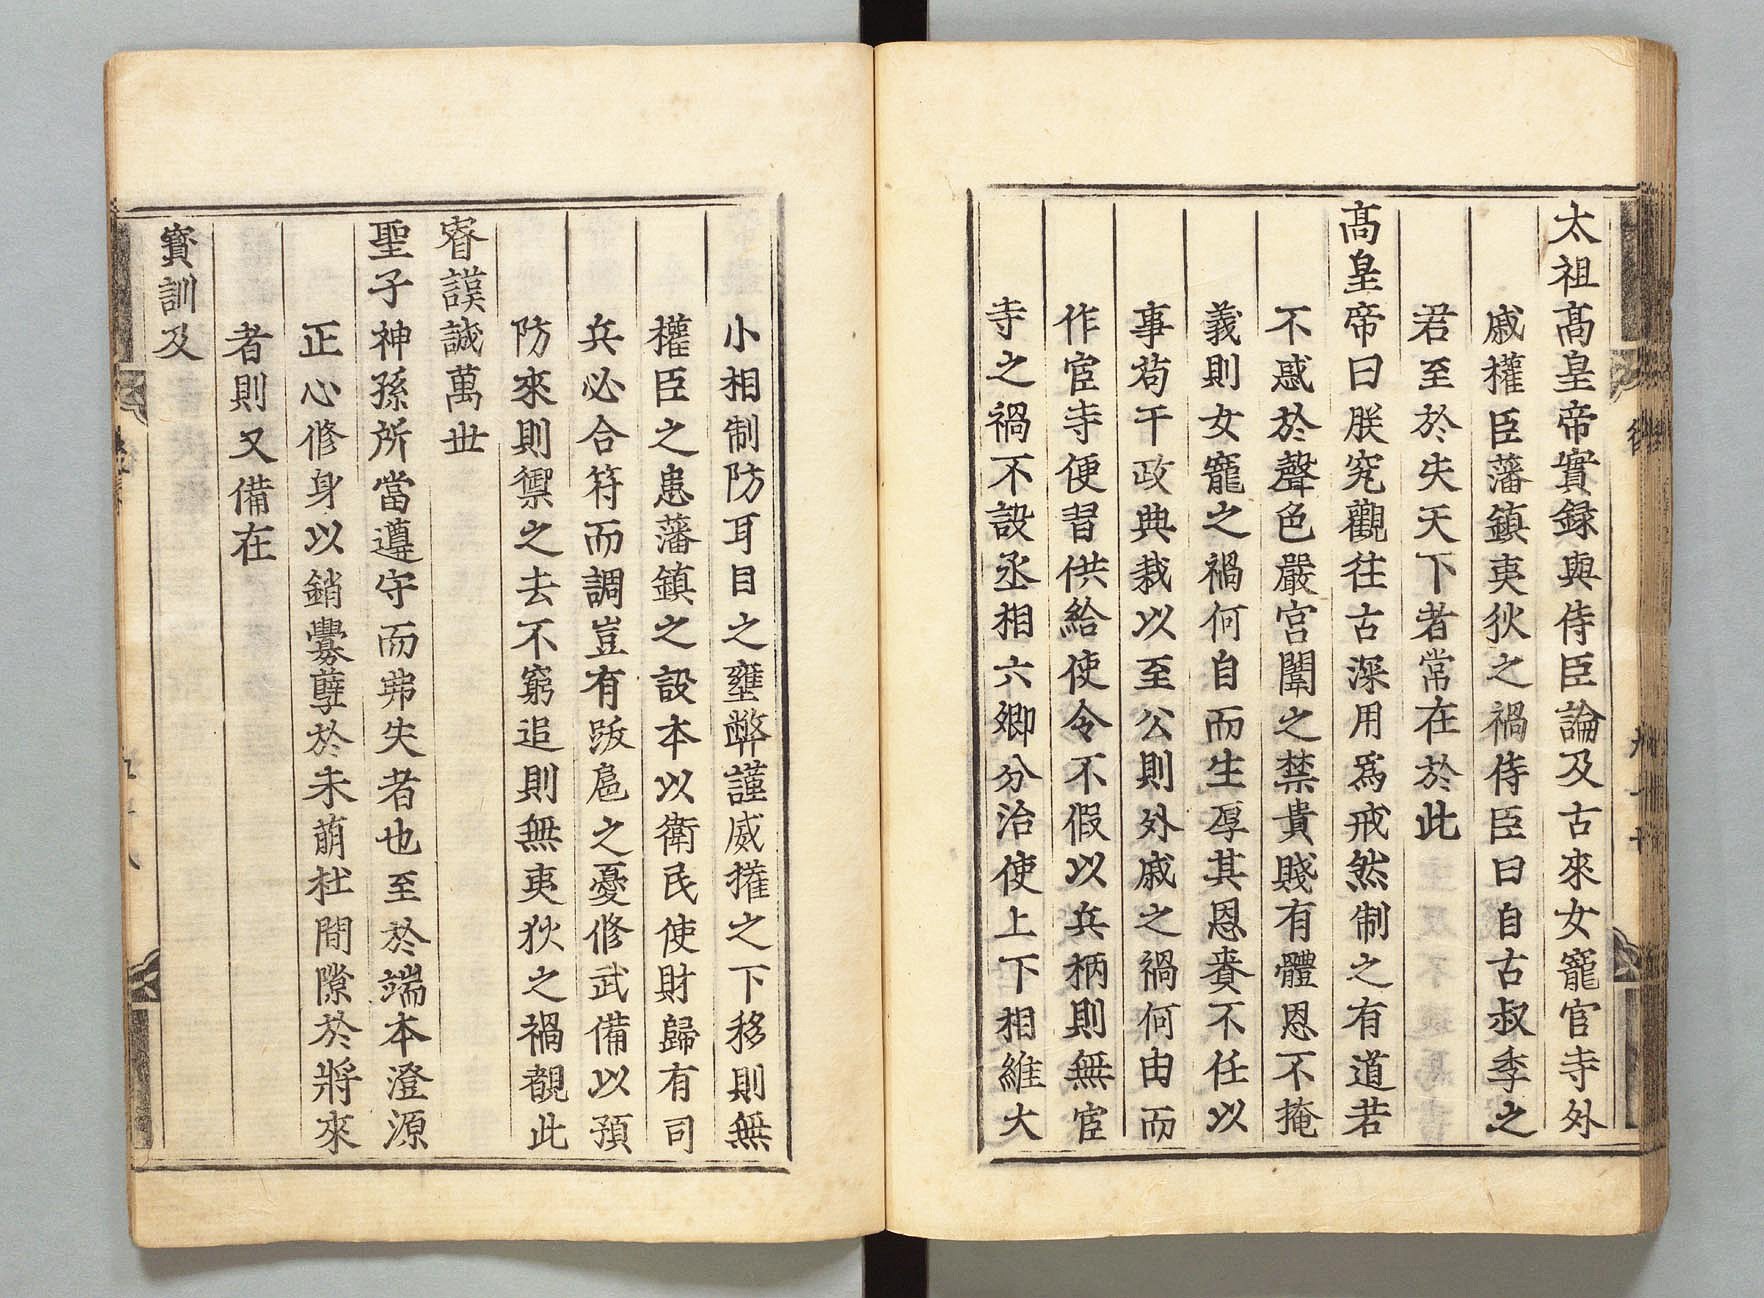 太祖高皇帝實録與侍臣論及古來女寵宦寺外
戚權臣藩鎮夷狄之禍侍臣曰自古叔季之
君至於失天下者常在於此
高皇帝曰朕究觀往古深用爲戒然制之有道若
不惑於聲色嚴宮闈之禁貴賤有體恩不掩
義則女寵之禍何自而生厚其恩賚不任以
事苟干政典裁以至公則外戚之禍何由而
作宦寺便習供給使令不假以兵柄則無宦
寺之禍不設丞相六卿分治使上下相維大
小相制防耳目之壅弊謹威權之下移則無
權臣之患藩鎮之設本以衛民使財歸有司
兵必合符而調豈有跋扈之憂修武備以預
防來則禦之去不窮追則無夷狄之禍覩此
睿謨誠萬世
聖子神孫所當遵守而弗失者也至於端本澄源
正心修身以銷釁孽於未萌杜間隙於將來
者則又備在
寶訓及